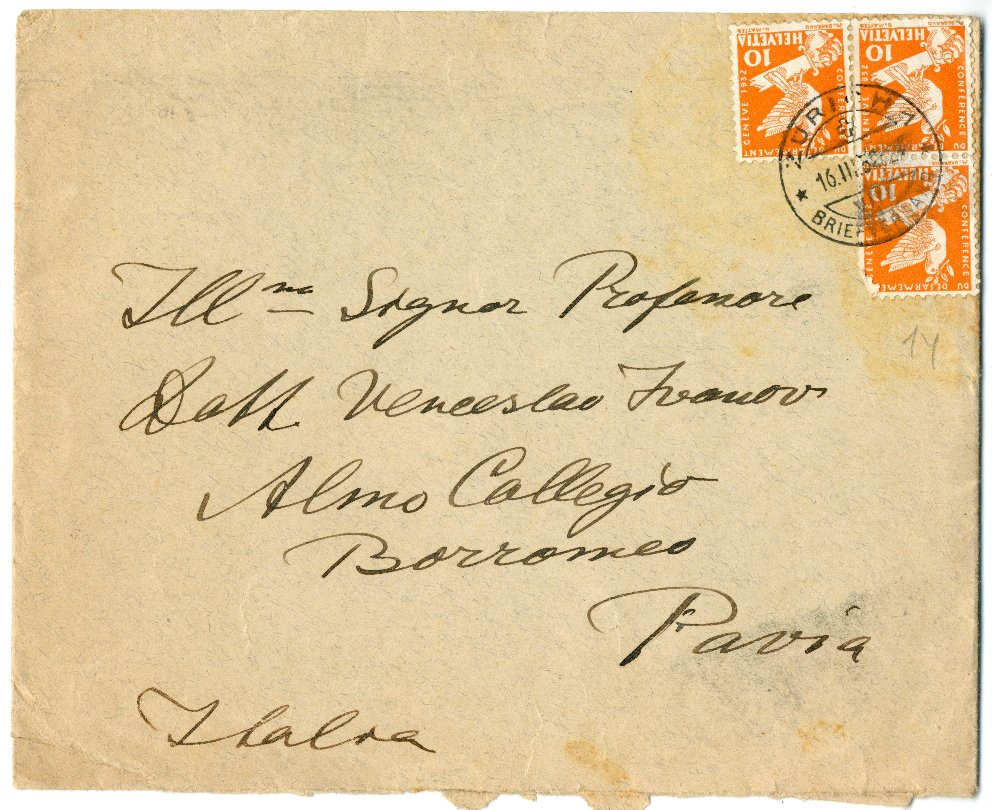 HELVETIA 10
GENÈVE 1932
CONFERENCE
DU DESARMEMENT
HELVETIA 10
CONFERENCE
DU DESARMEMENT
10
CONFERENCE
DU DESARMEMENT
ZÜRICH
16.III
BRIEF
14
Ill^mo Signor Professore
Dott Venceslao Ivanov
Almo Collegio
Borromeo
Pavia
Italia